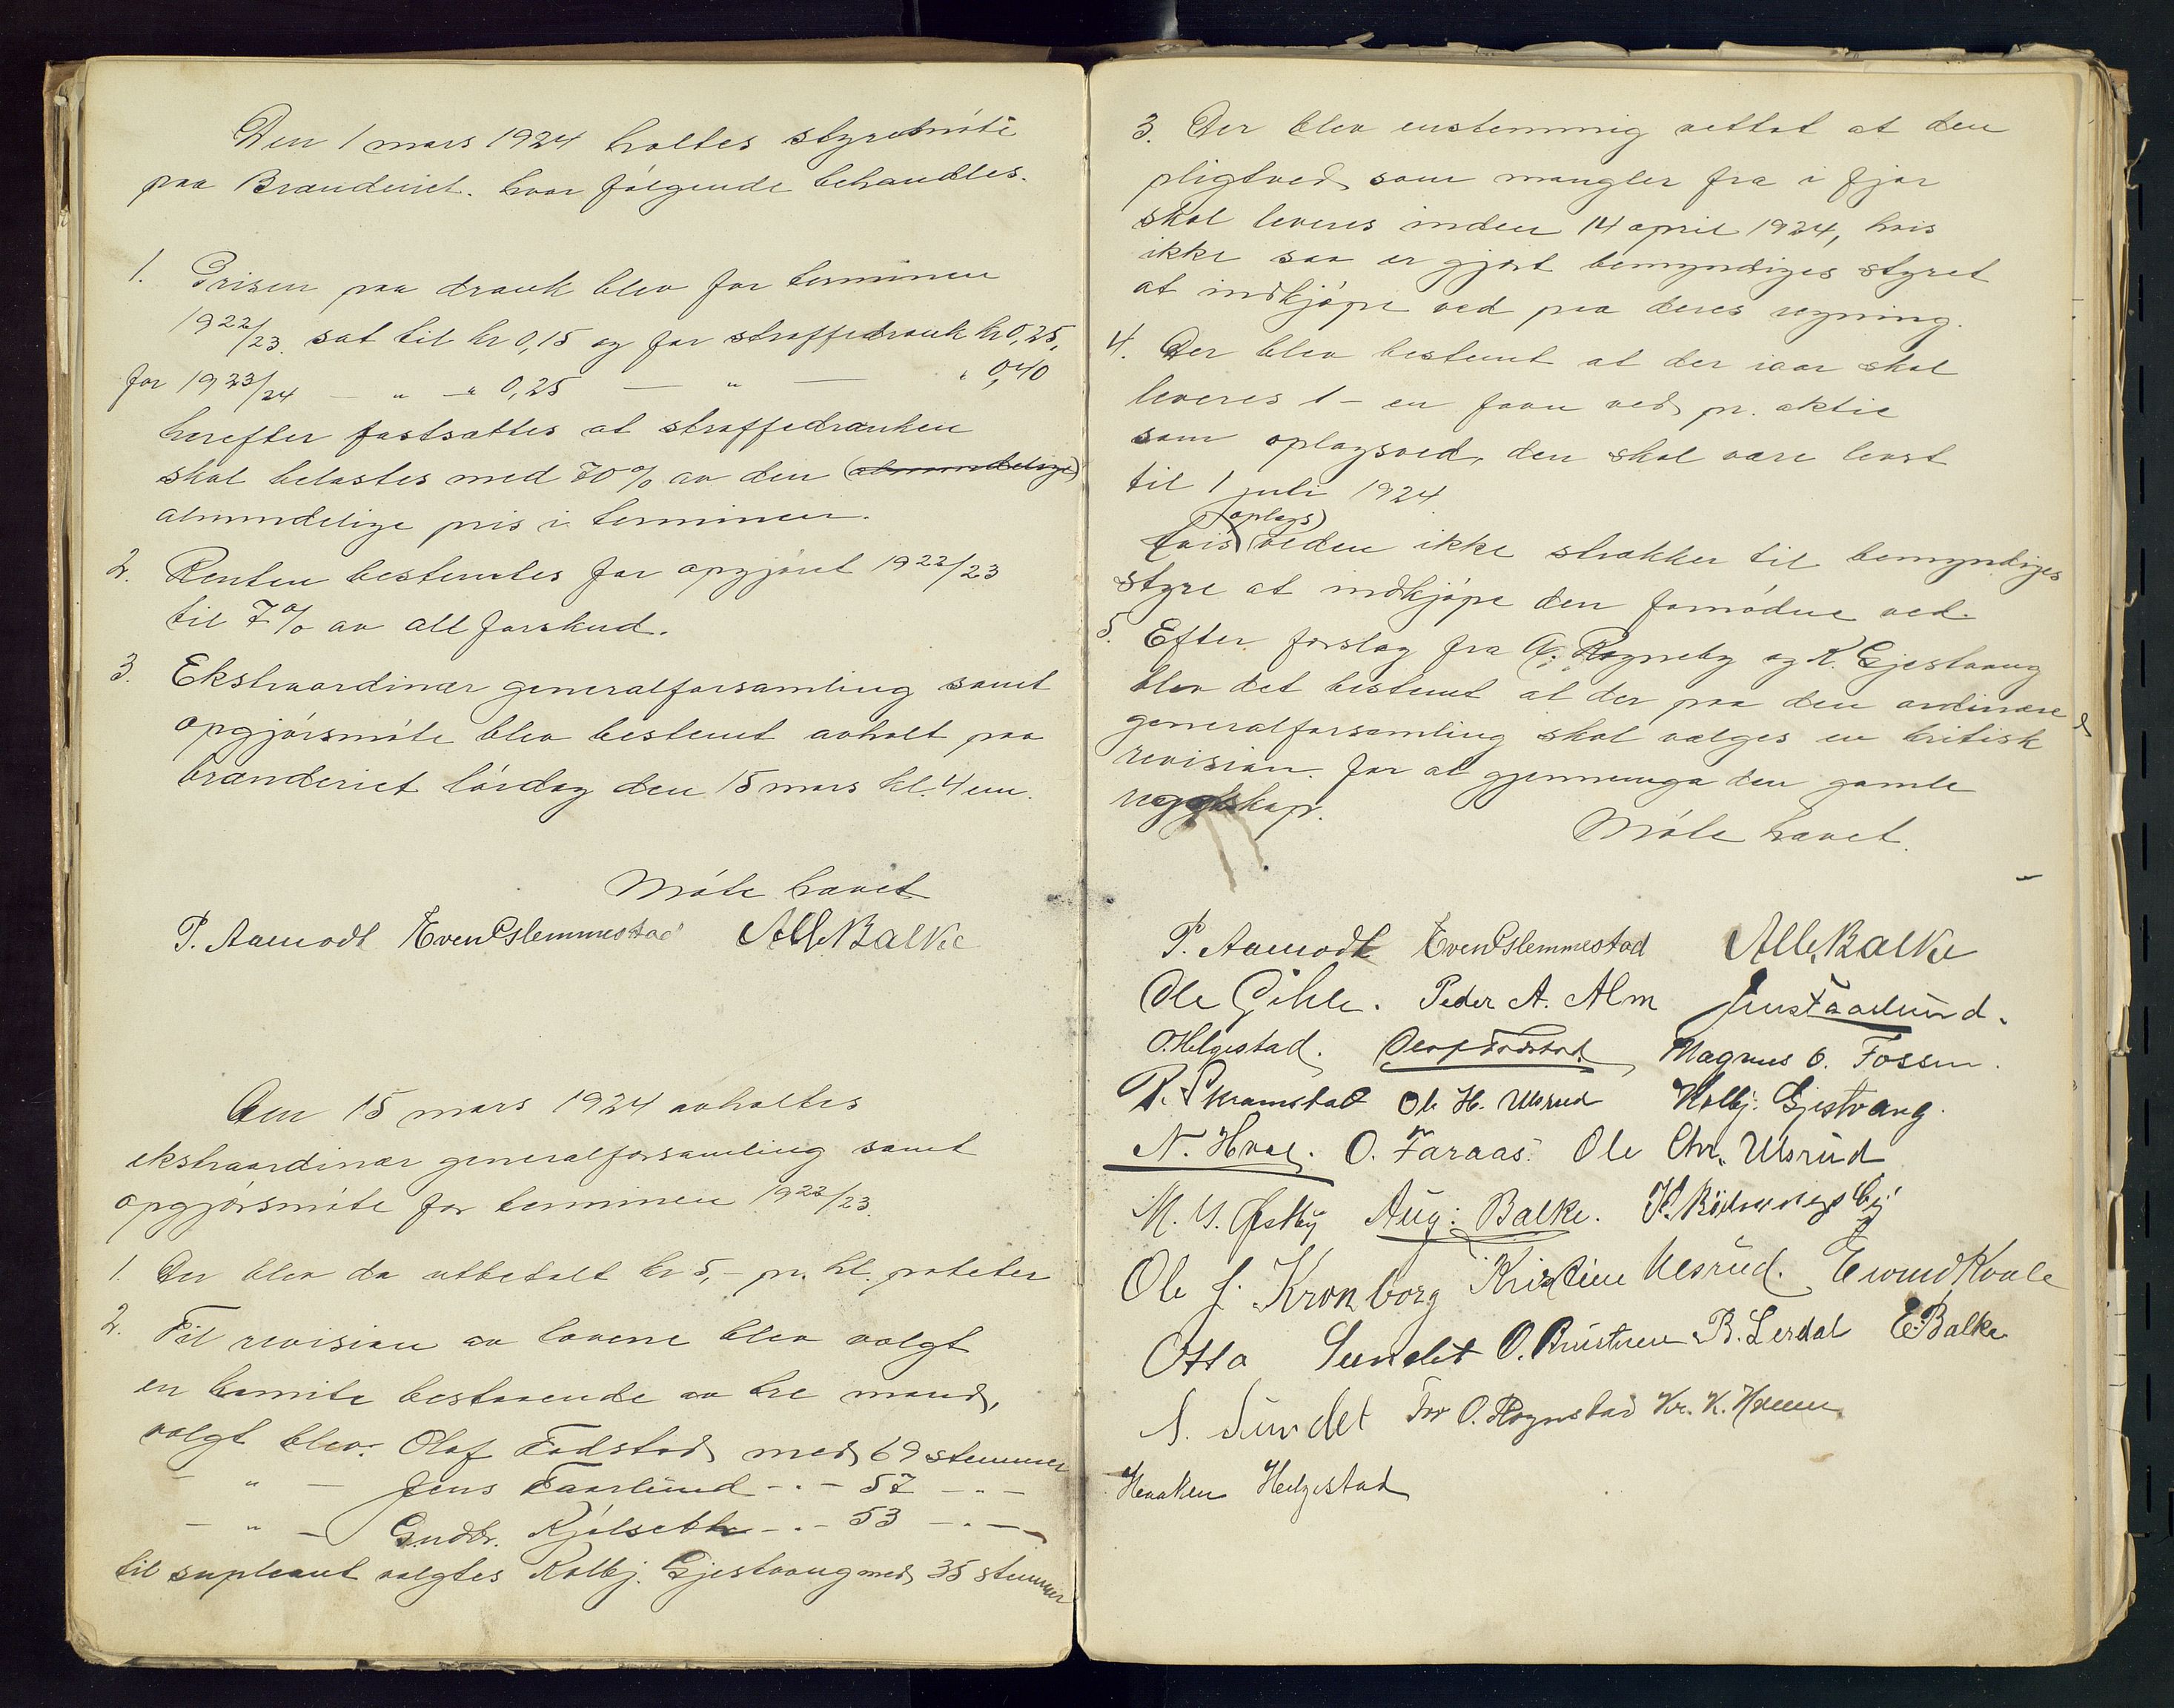 Den 1 mars 1924 holtes styremöte
paa Brænderiet. hvor følgende behandles.
1. Prisen paa drank blev for terminen
1922/23. sat til kr 0,15 og for straffedrank kr 0,25,
for 1923/24 — " — " 0,25 — " — " 0,40
herefter fastsattes at straffedranken
skal belastes med 70% av den (almindelige)
almindelige pris i terminen.
2. Renten bestemtes for opgjöret 1922/23
til 7% av all forskud.
3. Ekstraordinær generalforsamling samt
opgjörsmöte blev bestemt avholt paa
brænderiet lördag den 15 mars kl. 4 em.
Möte hævet
P. Aamodt Even Slemmestad Alb. Balke
Den 15 mars 1924 avholtes
ekstraordinær generalforsamling samt
opgjörsmöte for terminen 1922/23.
1. Der blev da utbetalt kr 5,- pr. hl. poteter
2. Til revision av lovene blev valgt
en komite bestaaende av tre mand,
valgt blev: Olaf Fodstad med 69 stemmer
— " — Jens Faarlund - . - 57 - . -
— " — Gudbr. Kjölseth - . - 53 - . -
til supleant valgtes Kolbj. Gjestvang med 35 stemmer
3. Der blev enstemmig vettat at den
pligtved som mangler fra i fjor
skal leveres inden 14 april 1924, hvis
ikke saa er gjort bemyndiges styret
at indkjöpe ved paa deres regning.
4. Der blev bestemt at der iaar skal
leveres 1 - en favn ved pr. aktie
som oplagsved, den skal være levert
til 1 juli 1924.
(oplags)
Hvis veden ikke strækker til bemyndiges
styre at indkjöpe den fornödne ved.
5. Efter forslag fra A. Rogneby og K. Gjestvang
blev det bestemt at der paa den ordinære
generalforsamling skal vælges en kritisk
revision for at gjennemga den gamle
regnskap.
Möte hævet.
P. Aamodt Even Slemmestad Alb. Balke
Ole Gihle. Peder A. Alm Jens Faarlund.
O. Helgestad. Olaf Fodstad. Magnus O. Fossen.
R. Skramstad Ole H. Ulsrud Kolbj. Gjestvang.
N. Hval. O. Faraas. Ole Chr. Ulsrud
M. Østby Aug: Balke.
Ole J. Kronborg Kristine Ulsrud. Eivind Kvale
Otto Sundet O. B. Lerdal E. Balke
S. Sundet O. Rognstad Kr. K.
Haaken Helgestad